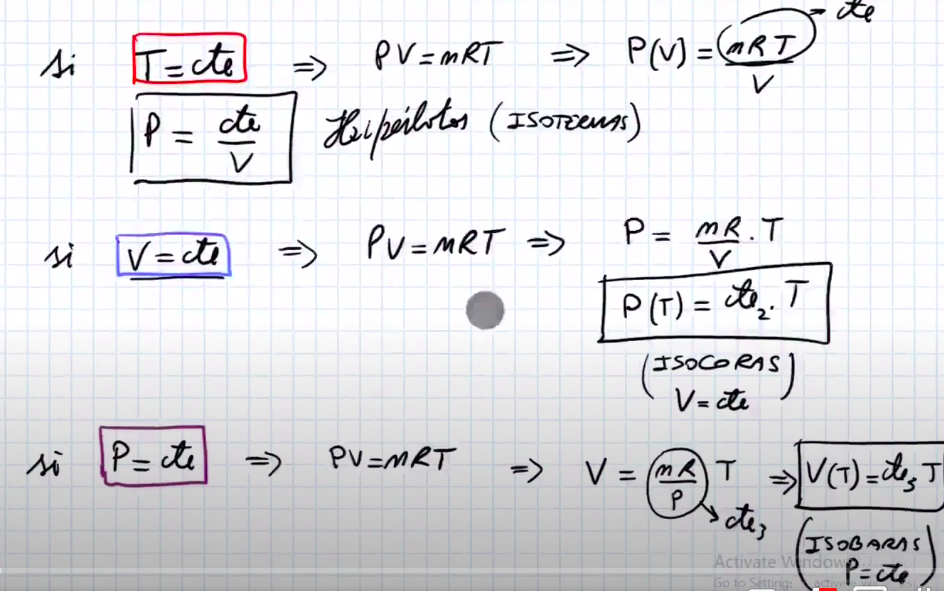 si T = cte ⇒ PV = mRT ⇒ P(V) = mRT / V → cte
P = cte / V Hipérbolas (ISOTERMAS)
si V = cte ⇒ PV = mRT ⇒ P = mR / V . T
P(T) = cte₂ . T
(ISOCORAS)
V = cte
si P = cte ⇒ PV = mRT ⇒ V = mR / P T ⇒ V(T) = cte₃ T
→ cte₃
(ISOBARAS
P = cte)
Activate Windows
Go to Settings